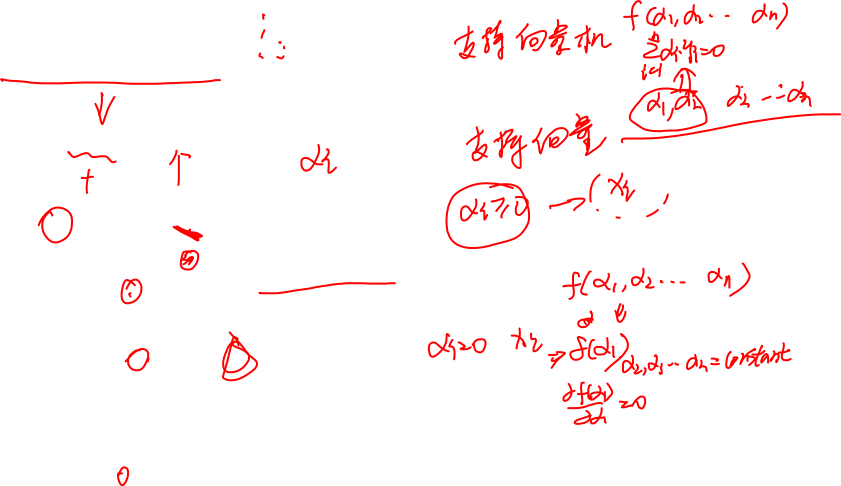 支持向量机 f(α₁,α₂… αₙ)
∑αᵢyᵢ=0
i=1
α₁,α₂
支持向量
αᵢ
αᵢ≥0 → (xᵢ
f(α₁,α₂… αₙ)
αᵢ=0 xᵢ ⇒ f(α₁) α₂,α₃…αₙ=constant
∂f(α₁)/∂α₁=0